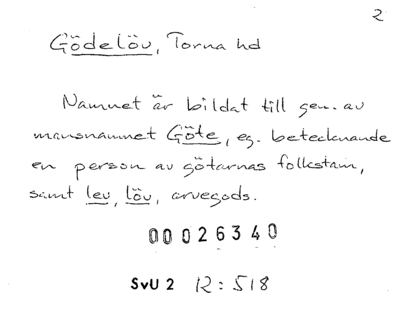 2
Gödelöv, Torna hd
Namnet är bildat till gen. av
mansnamnet Göte, eg. betecknande
en person av götarnas folkstam,
samt lev, löv, arvegods.
00026340
SvU 2 12:518